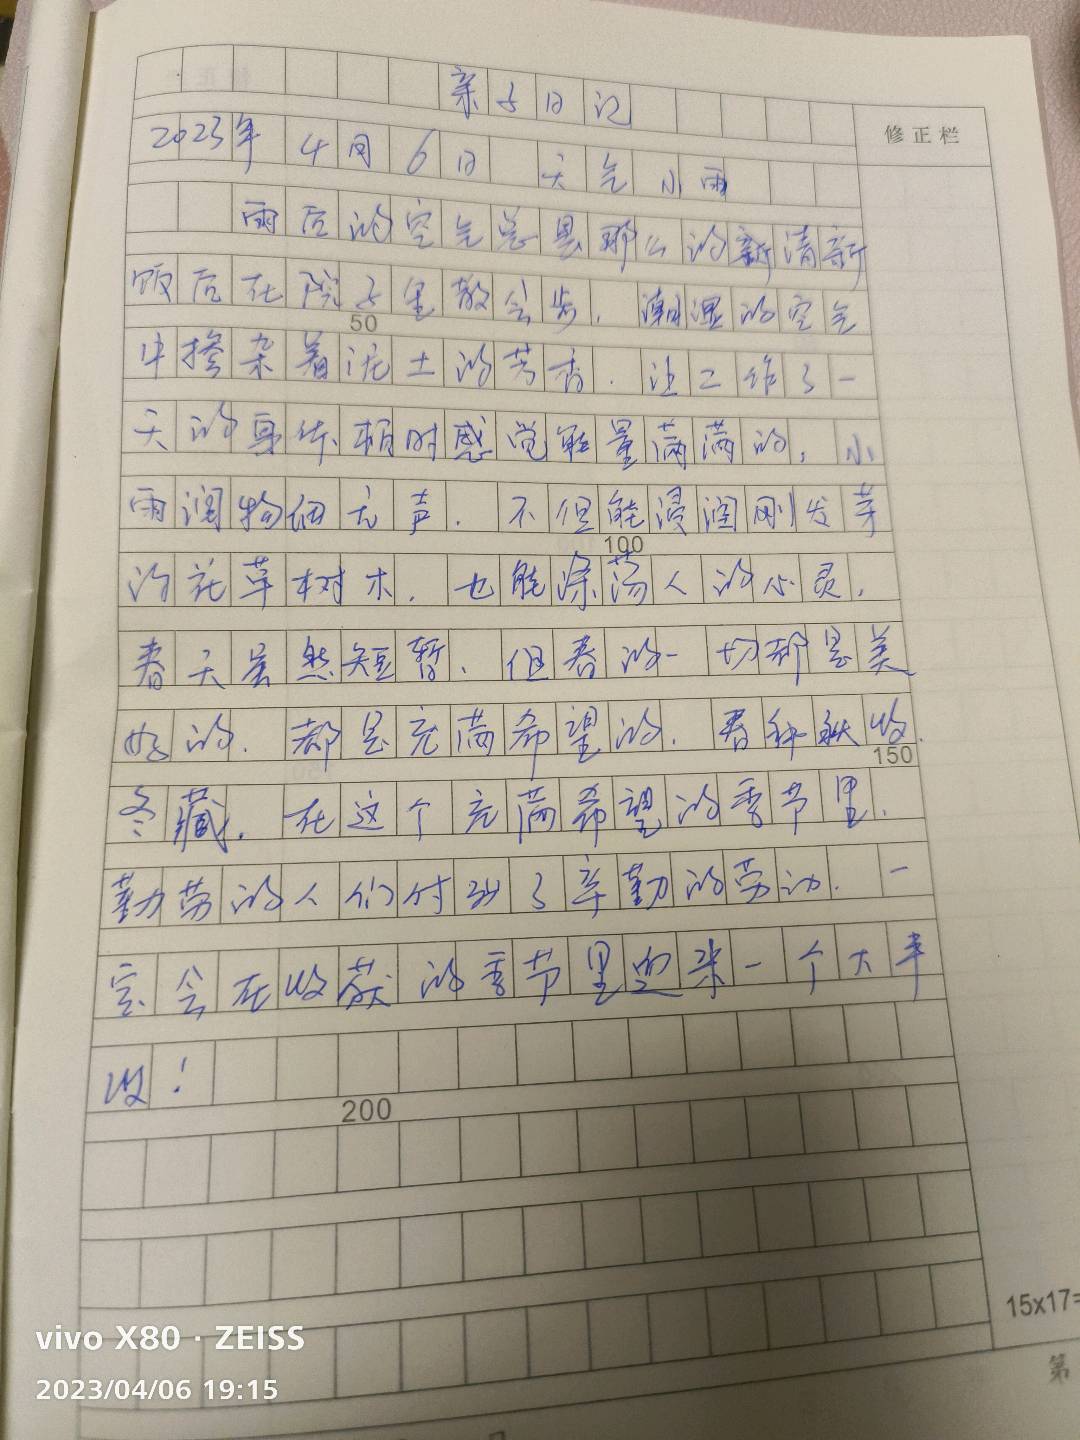 亲子日记
修正栏
2023年4月6日 天气小雨
雨后的空气总是那么的新清新
饭后在院子里散会步,潮湿的空气
50
中掺杂着泥土的芳香.让工作了一
天的身体顿时感觉能量满满的,小
雨润物细无声.不但能浸润刚发芽
100
的花草树木.也能涤荡人的心灵,
春天虽然短暂.但春的一切都是美
好的.都是充满希望的.春种秋收.
150
冬藏.在这个充满希望的季节里.
勤劳的人们付出了辛勤的劳动.一
定会在收获的季节里迎来一个大丰
收!
200
15x17=
第
vivo X80 · ZEISS
2023/04/06 19:15